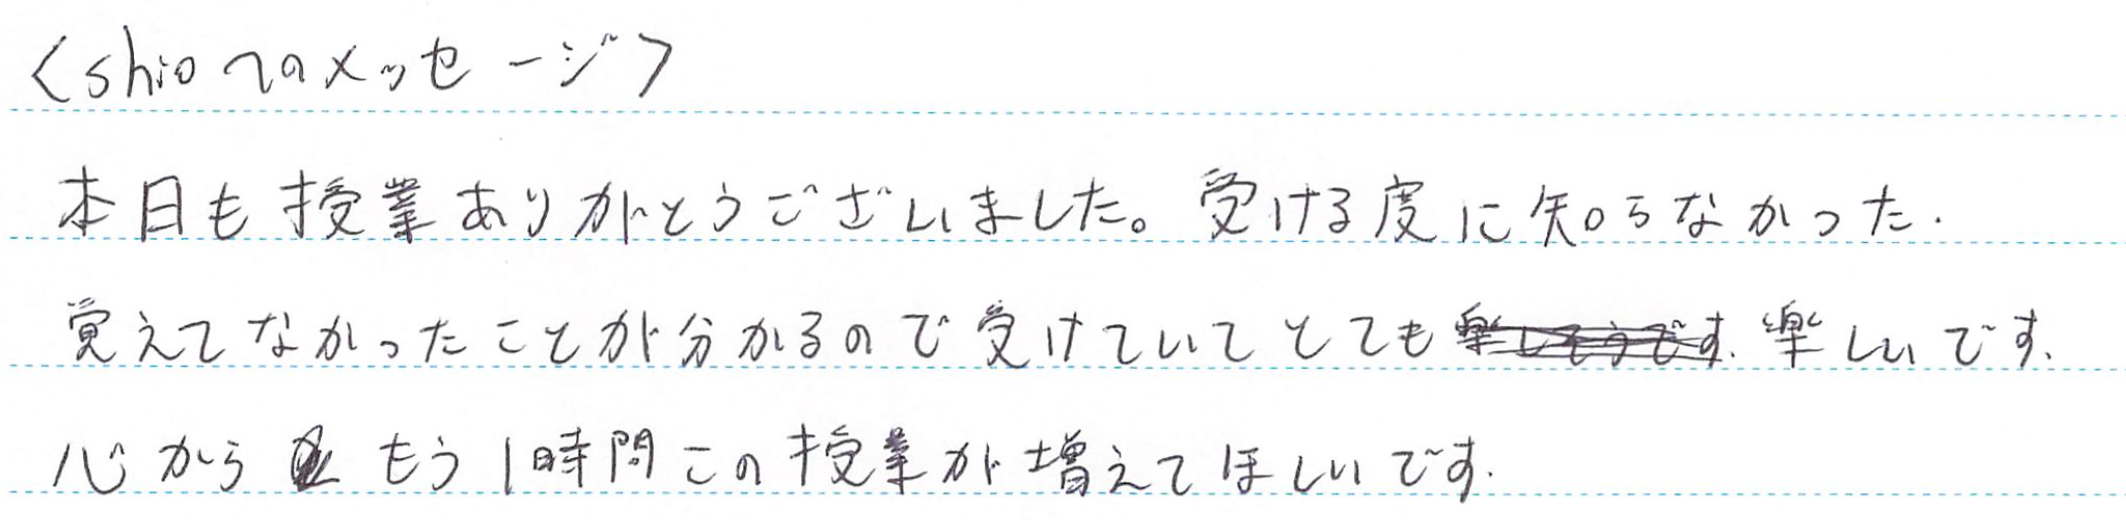 <shioへのメッセージ>
本日も授業ありがとうございました。受ける度に知らなかった.
覚えてなかったことが分かるので受けていてとても楽しいです.
心からもう1時間この授業が増えてほしいです.